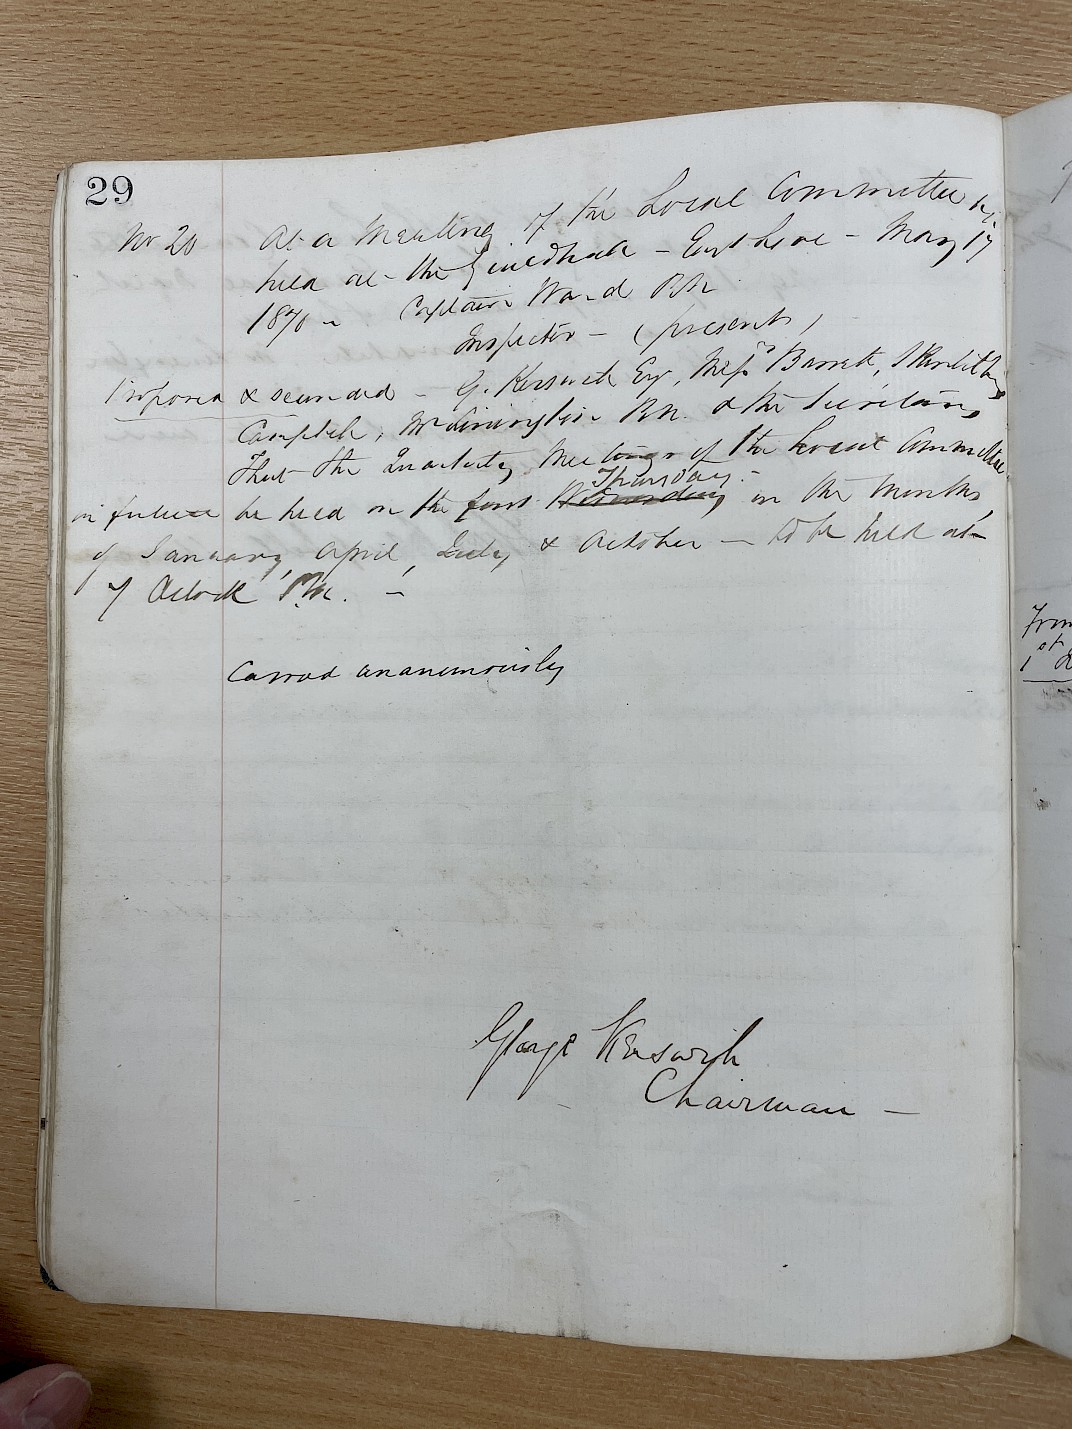 29
No 20 At a Meeting of the Local Committee
held at the Guildhall - East Looe - May 17
1870 - Captain Ward RN
Inspector - (present)
Proposed & seconded - G. Kerswill Esq, Messrs Barratt,
Campbell, Mr Livingstone RN. & the Secretary
That the Quarterly Meetings of the Local Committee
Thursday
in future be held on the first in the Months
of January, April, July & October - to be held at
7 Oclock P.M. -
Carrad unanemously
George Kerswill
Chairman -
From
1st